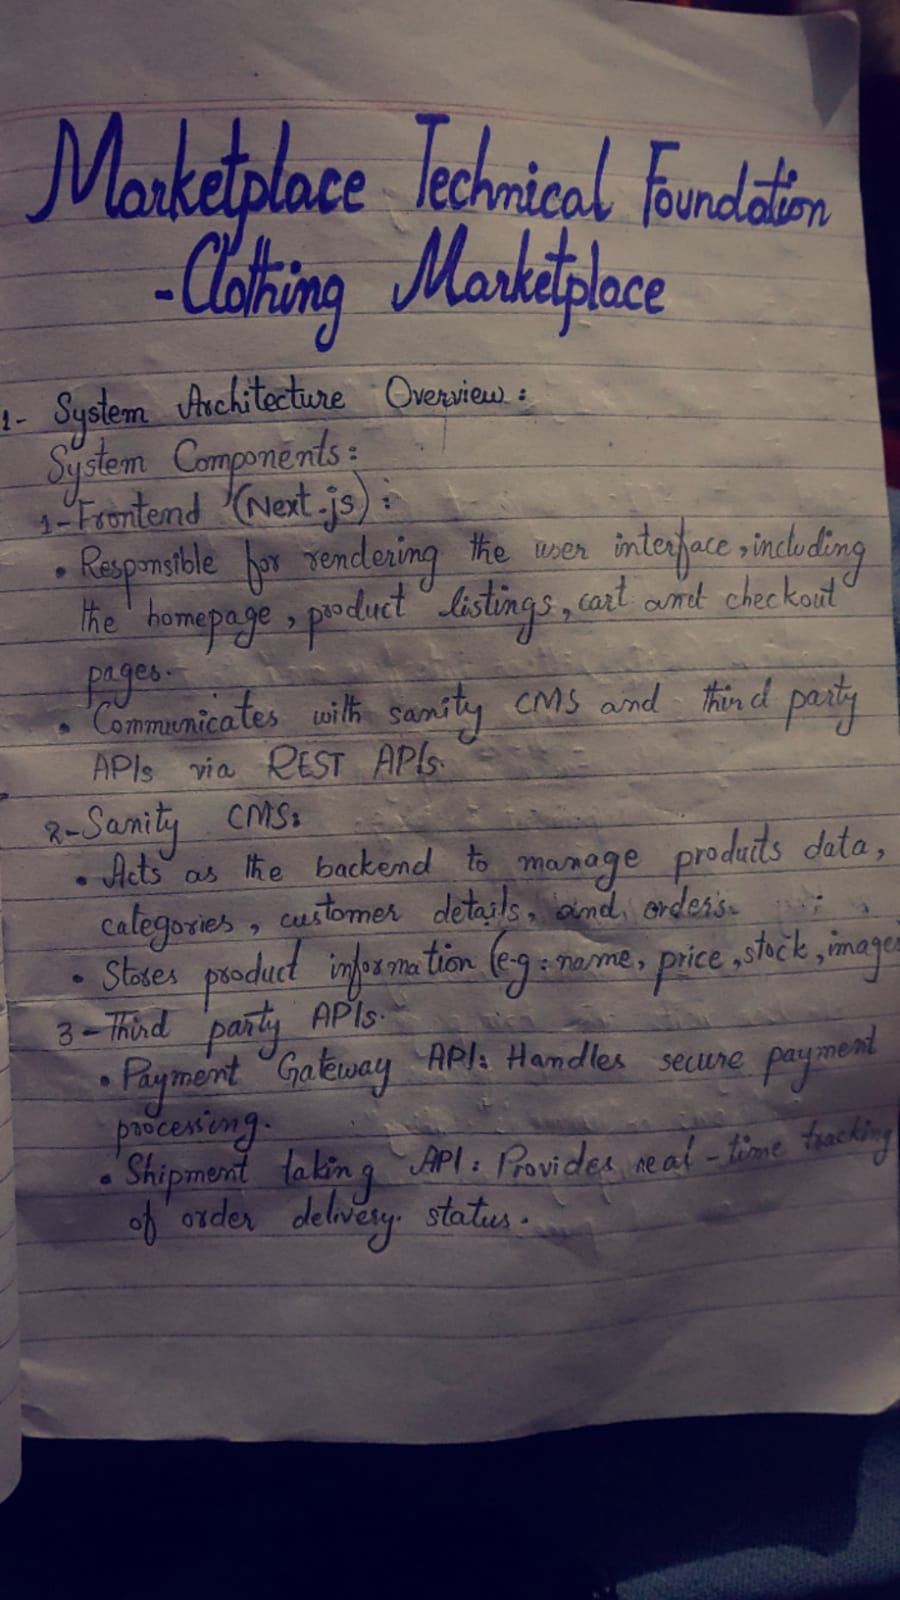 Marketplace Technical Foundation
-Clothing Marketplace
1- System Architecture Overview:
System Components:
1-Frontend (Next.js):
• Responsible for rendering the user interface, including
the homepage, product listings, cart and checkout
pages.
• Communicates with sanity CMS and third party
APIs via REST APIs.
2-Sanity CMS:
• Acts as the backend to manage products data,
categories, customer details, and orders.
• Stores product information (e.g: name, price, stock, image
3-Third party APIs.
• Payment Gateway API: Handles secure payment
processing.
• Shipment taking API: Provides real-time tracking
of order delivery. status.